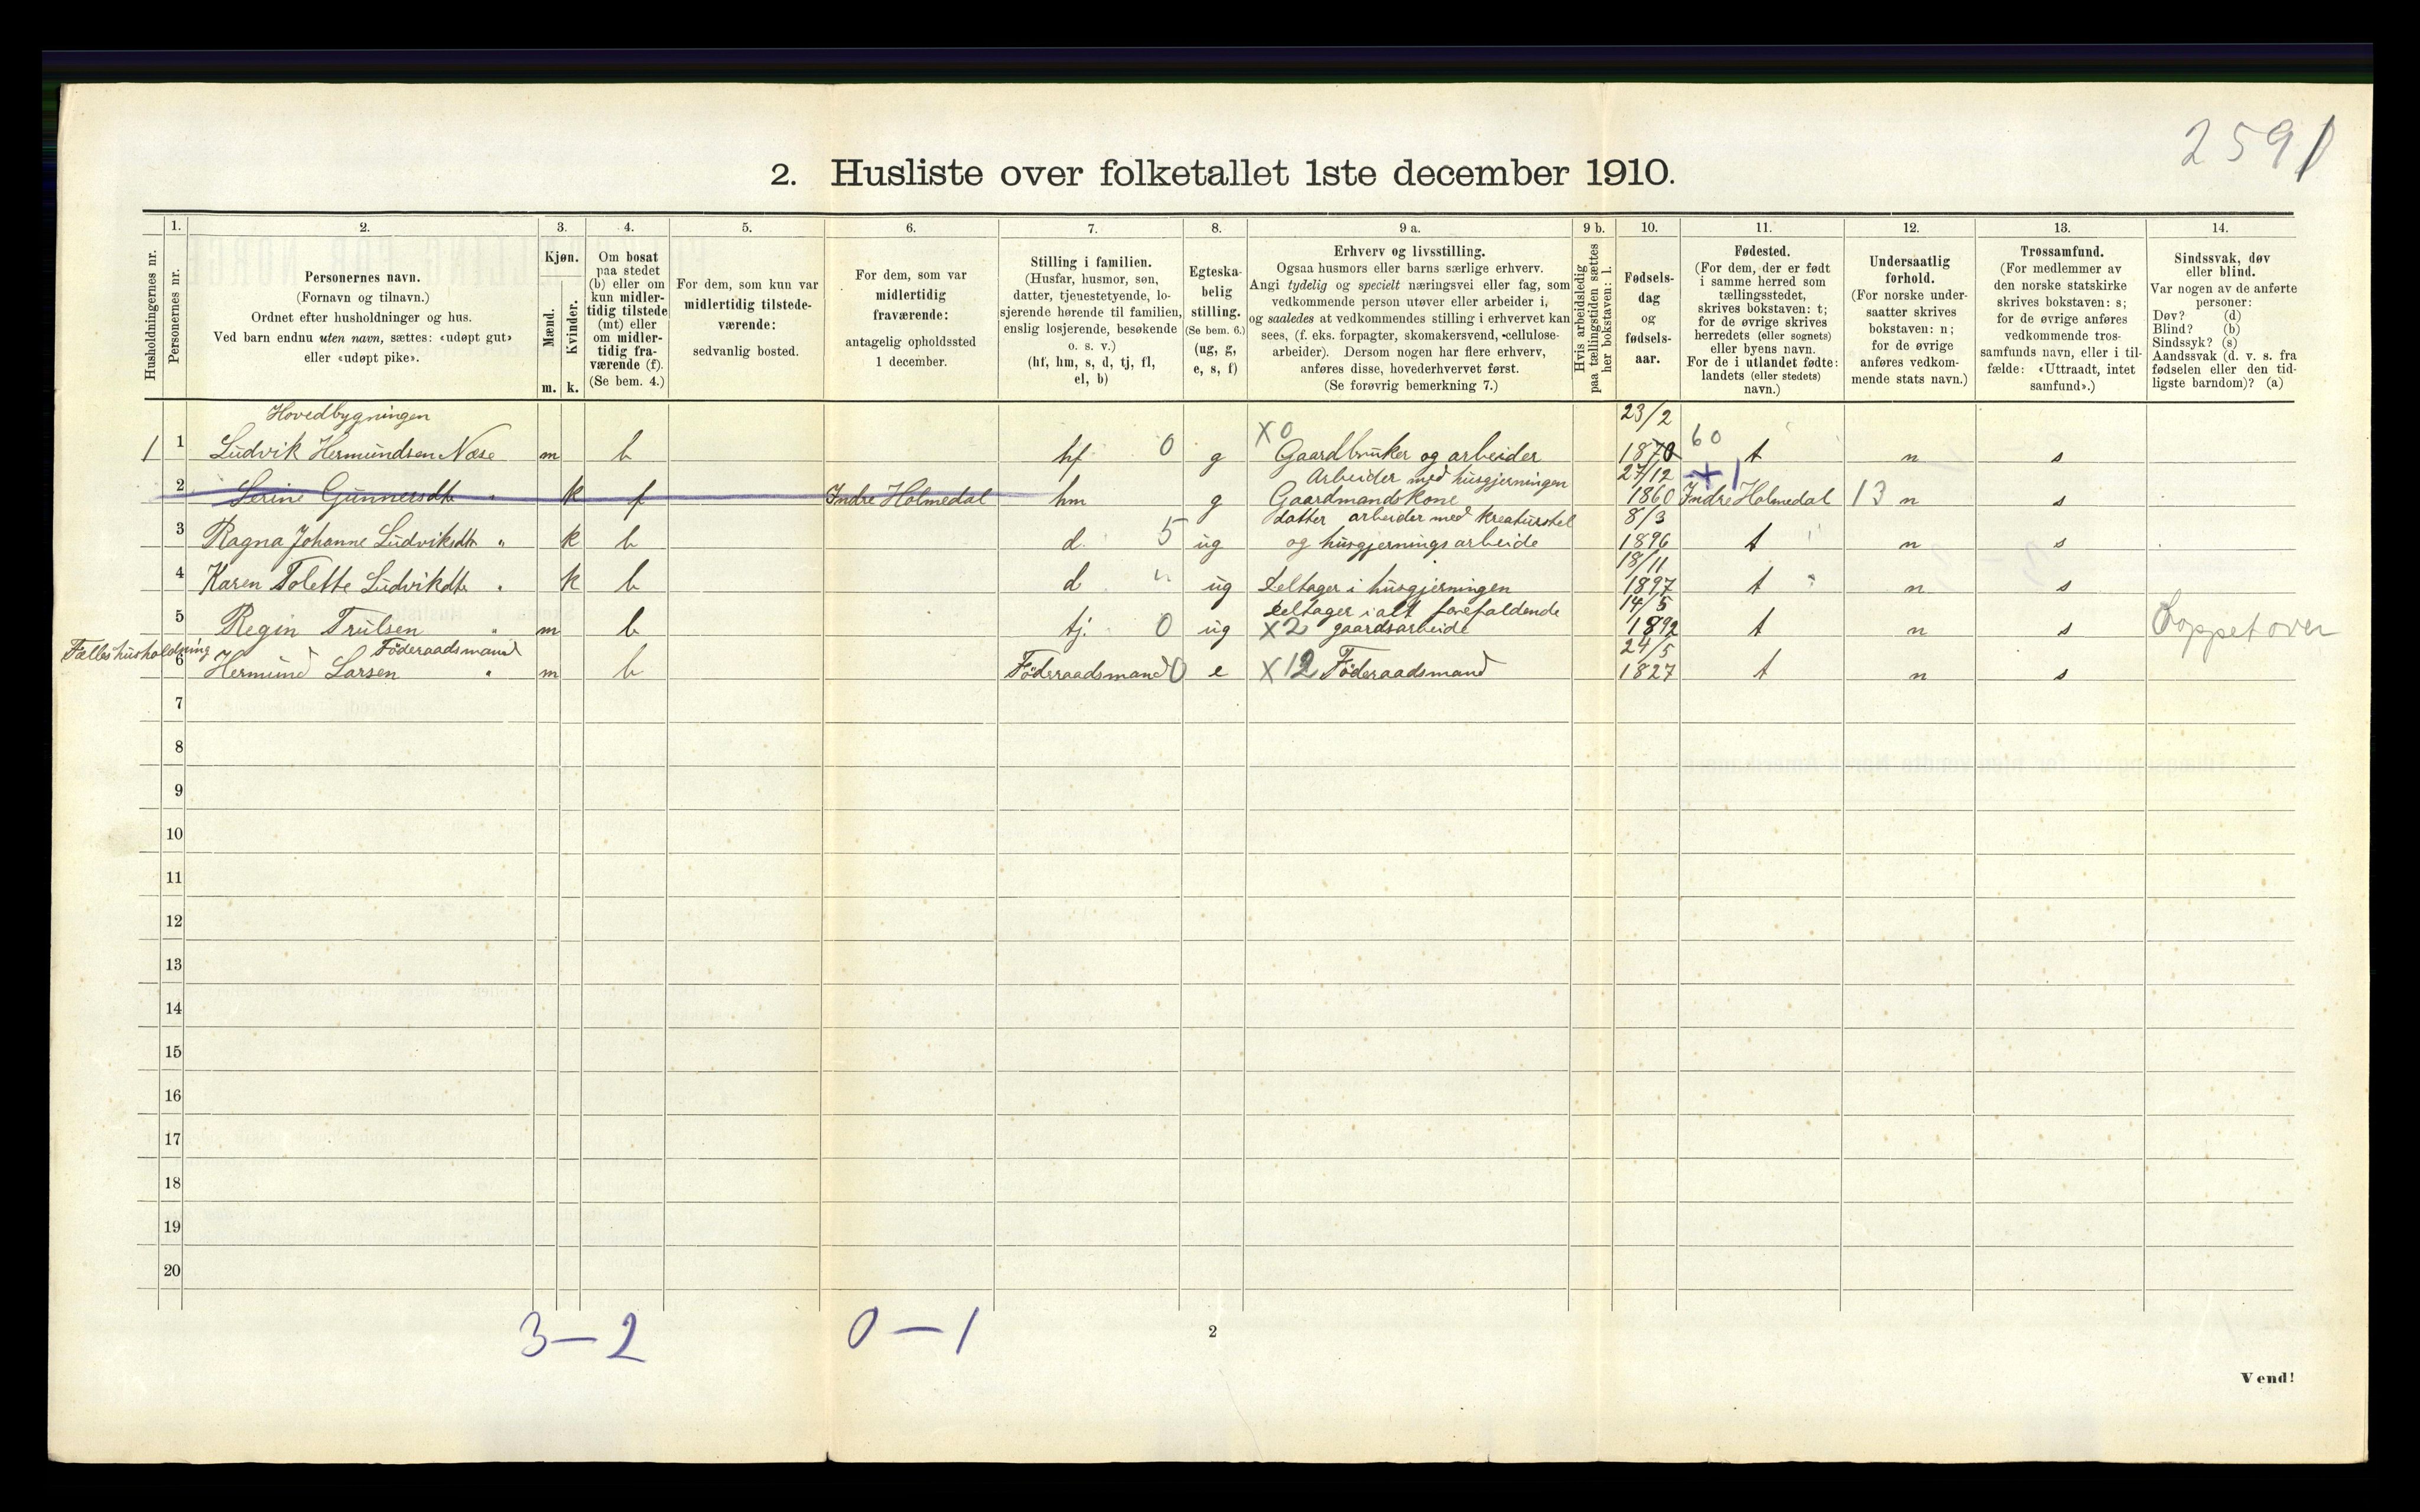 2591
2. Husliste over folketallet 1ste december 1910.
Husholdningernes nr.
1.
Personernes nr.
2.
Personernes navn.
(Fornavn og tilnavn.)
Ordnet efter husholdninger og hus.
Ved barn endnu uten navn, sættes: «udøpt gut»
eller «udøpt pike».
3.
Kjøn.
Mænd.
Kvinder.
m. k.
4.
Om bosat
paa stedet
(b) eller om
kun midler-
tidig tilstede
(mt) eller
om midler-
tidig fra-
værende (f).
(Se bem. 4.)
5.
For dem, som kun var
midlertidig tilstede-
værende:
sedvanlig bosted.
6.
For dem, som var
midlertidig
fraværende:
antagelig opholdssted
1 december.
7.
Stilling i familien.
(Husfar, husmor, søn,
datter, tjenestetyende, lo-
sjerende hørende til familien,
enslig losjerende, besøkende
o. s. v.)
(hf, hm, s, d, tj, fl,
el, b)
8.
Egteska-
belig
stilling.
(Se bem. 6.)
(ug, g,
e, s, f)
9 a.
Erhverv og livsstilling.
Ogsaa husmors eller barns særlige erhverv.
Angi tydelig og specielt næringsvei eller fag, som
vedkommende person utøver eller arbeider i,
og saaledes at vedkommendes stilling i erhvervet kan
sees, (f. eks. forpagter, skomakersvend, cellulose-
arbeider). Dersom nogen har flere erhverv,
anføres disse, hovederhvervet først.
(Se forøvrig bemerkning 7.)
9 b.
Hvis arbeidsledig
paa tællingstiden sættes
her bokstaven: l.
10.
Fødsels-
dag
og
fødsels-
aar.
11.
Fødested.
(For dem, der er født
i samme herred som
tællingsstedet,
skrives bokstaven: t;
for de øvrige skrives
herredets (eller sognets)
eller byens navn.
For de i utlandet fødte:
landets (eller stedets)
navn.)
12.
Undersaatlig
forhold.
(For norske under-
saatter skrives
bokstaven: n;
for de øvrige
anføres vedkom-
mende stats navn.)
13.
Trossamfund.
(For medlemmer av
den norske statskirke
skrives bokstaven: s;
for de øvrige anføres
vedkommende tros-
samfunds navn, eller i til-
fælde: «Uttraadt, intet
samfund».)
14.
Sindssvak, døv
eller blind.
Var nogen av de anførte
personer:
Døv? (d)
Blind? (b)
Sindssyk? (s)
Aandssvak (d. v. s. fra
fødselen eller den tid-
ligste barndom)? (a)
Hovedbygningen 23/2
1 1 Ludvik Hermundsen Næse m b hf 0 g X0 Gaardbruker og arbeider 1870 60 t n s
Arbeider med husgjerningen 27/12 + 1
2 Serine Gunnersdtr " k f Indre Holmedal hm g Gaardmandskone 1860 Indre Holmedal 13 n s
datter arbeider med kreaturstel 8/3
3 Ragna Johanne Ludviksdtr " k b d. 5 ug og husgjernings arbeide 1896 t n s
18/11
4 Karen Tolette Ludvikdtr " k b d " ug deltager i husgjerningen 1897 t n s
deltager i alt forefaldende 14/5
5 Regin Trulsen " m b tj. 0 ug X2 gaardsarbeide 1892 t n s Loppet over
Fælles husholdning Föderaadsmand 24/5
6 Hermund Larsen " m b Föderaadsmand 0 e X12 Föderaadsmand 1827 t n s
7
8
9
10
11
12
13
14
15
16
17
18
19
20
3-2 0-1
2
Vend!